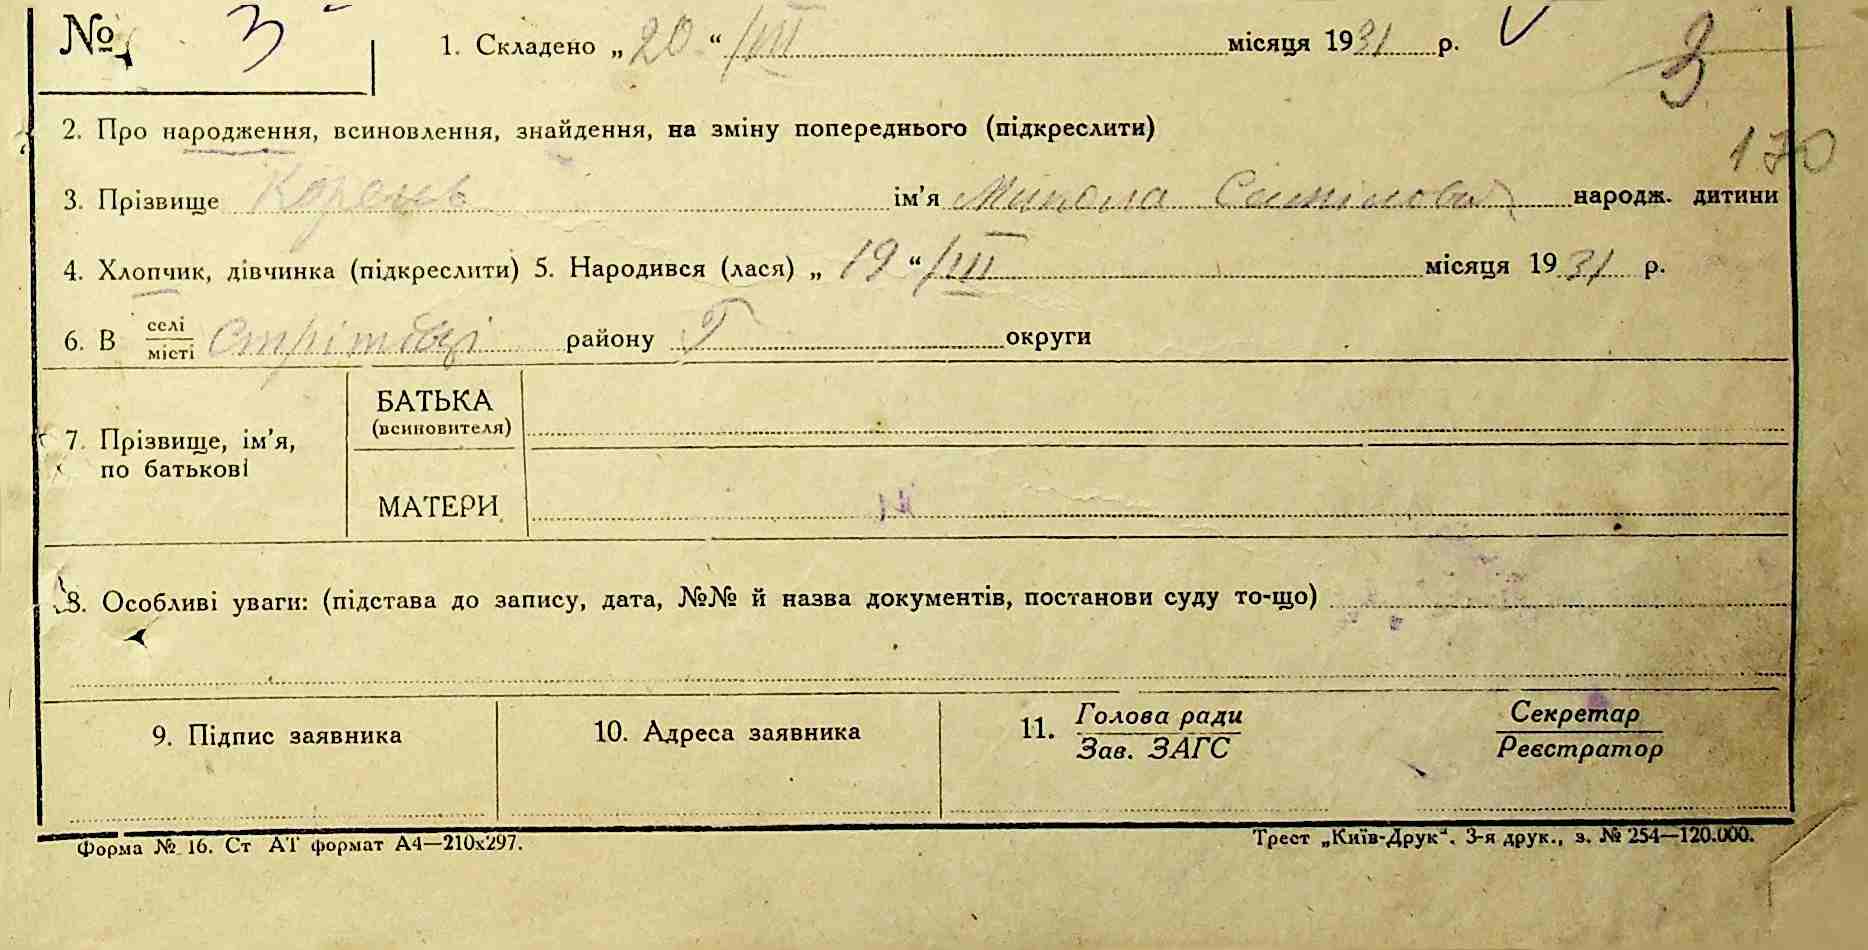 № 3 1. Складено „20“ /VIII місяця 1931 р. 3
2. Про народження, всиновлення, знайдення, на зміну попереднього (підкреслити)
170
3. Прізвище Корень ім’я Микола народж. дитини
4. Хлопчик, дівчинка (підкреслити) 5. Народився (лася) „19“ /VIII місяця 1931 р.
6. В селі/місті району округи
7. Прізвище, ім’я, по батькові
БАТЬКА
(всиновителя)
МАТЕРИ
8. Особливі уваги: (підстава до запису, дата, №№ й назва документів, постанови суду то-що)
9. Підпис заявника 10. Адреса заявника 11. Голова ради Секретар
Зав. ЗАГС Реєстратор
Форма № 16. Ст АТ формат А4—210х297. Трест „Київ-Друк“. 3-я друк., з. № 254—120.000.